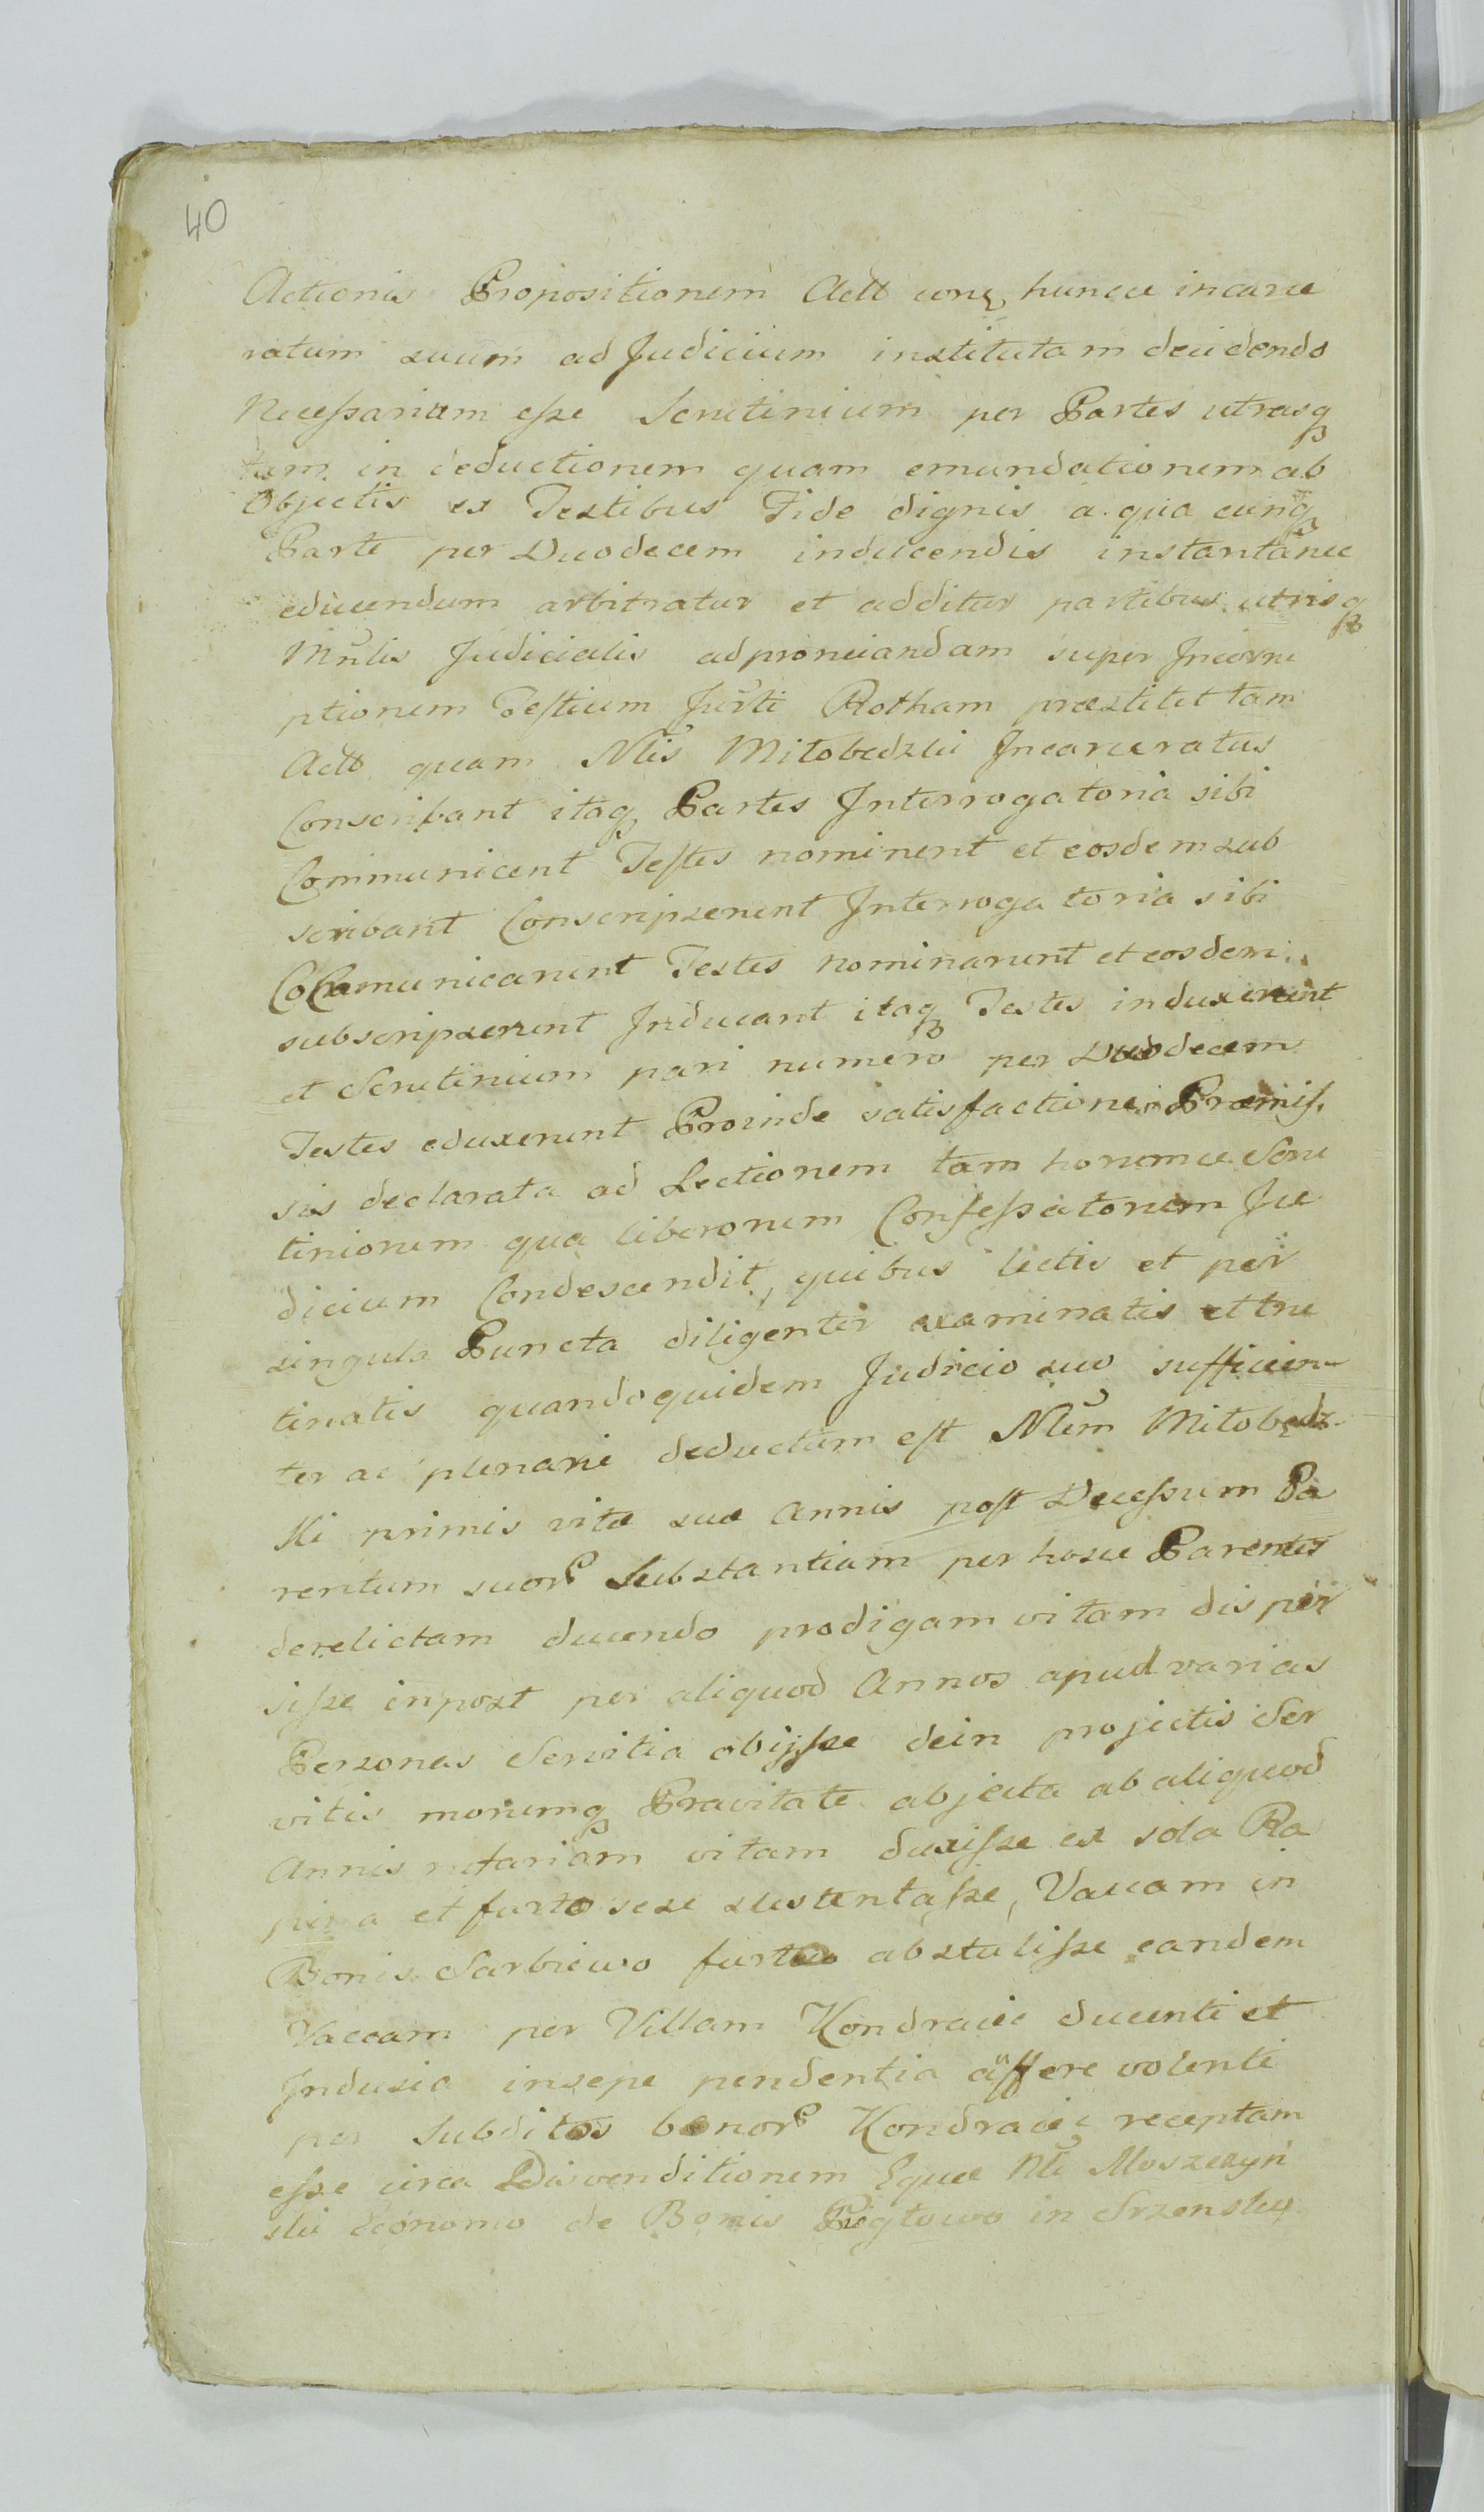 40
Actionis Propositionem Actt conq hunce incarce
ratum suum ad Judicium institutam decidendo
Necessarium esse Scrutinium per Partes utrasq
tam in deductionem quam emundationem ab
Objectis ex Testibus Fide dignis a qua cunq
Parte per Duodecem inducendis instantanee
educendum arbitratur et additur partibus utrisq
Mñlis Judicialis ad pronciandam super Incorru
ptionem Testium Jurti Rotham præstitit tam
Actt quam Nlis Miłobedzki Incarceratus
Conscribant itaq Partes Interrogatoria sibi
Communicent Testes nominent et eosdem sub
scribant Conscripserunt Interrogatoria sibi
Communicarunt Testes nominarunt et eosdem
subscripserunt Inducant itaq Testes induxerunt
et Scrutinium pari numero per Duodecem
Testes eduxerunt Proinde satisfactione Præmis
sis declarata ad Lectionem tam horumce Scru
tiniorum qua liberorum Confessatorum Ju
dicium Condescendit, quibus lectis et per
singula Puncta diligenter examinatis et tru
tinatis quandoquidem Judicio suo sufficien-
ter ac plenarie deductum est Nlem Miłobędz-
ki primis vitæ suæ Annis post Decessum Pa
rentum suor Substantiam per hosce Parentes
derelictam ducendo prodigam vitam disper
sisse inpost per aliquod Annos apud varias
Personas Servitia obijsse dein projectis Ser
vitis morumq Pravitate abjecta ab aliquod
Annis nefariam vitam duxisse ex sola Ra
pina et furto sese sustentasse, Vaccam in
Bonis Sarbiewo furtive abstulisse eandem
Vaccam per Villam Kondraiec ducenti et
Indusia in sepe pendentia auffere volenti
per Subditos bonor Kondraiec receptam
esse circa Disvenditionem Equæ Nli Moszczyń
ski Economo de Bonis Pigłowo in Srzensku